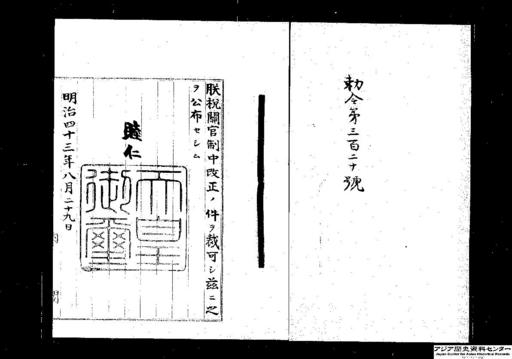 勅令第三百二十號
朕税關官制中改正ノ件ヲ裁可シ茲ニ之
ヲ公布セシム
睦仁
天皇
御璽
明治四十三年八月二十九日
アジア歴史資料センター
Japan Center for Asian Historical Records